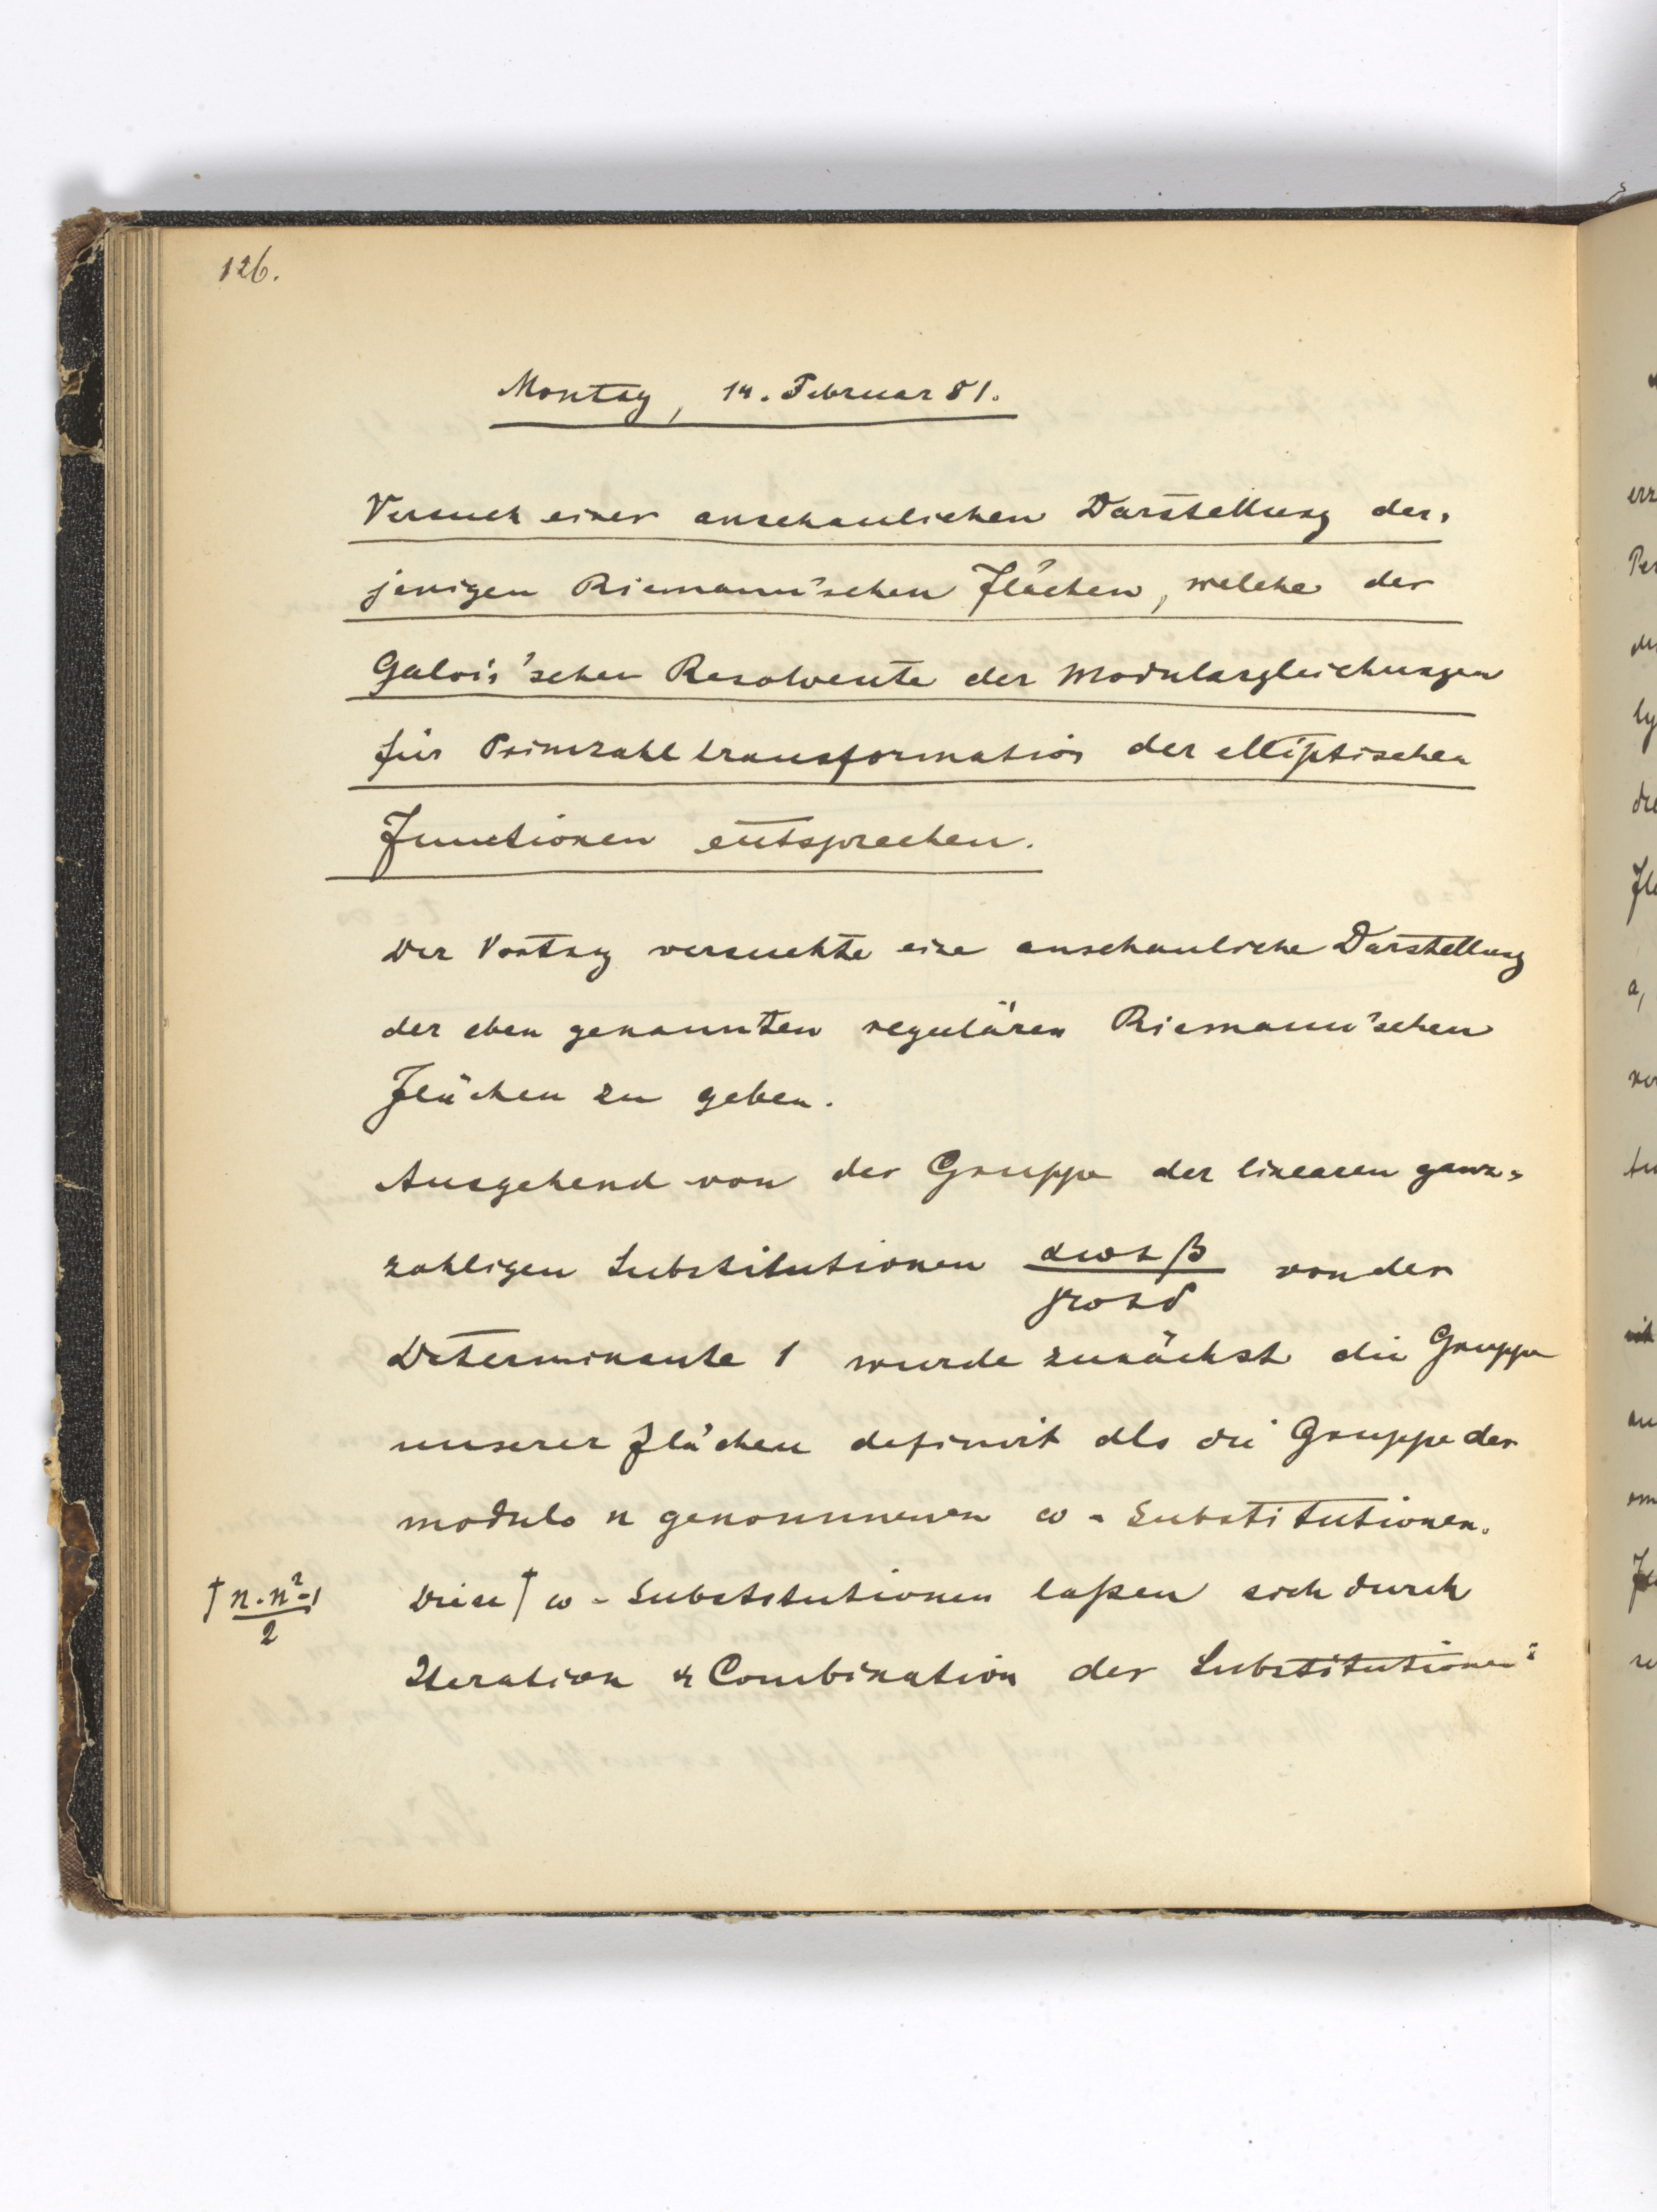 126.
Montag, 14. Februar 81.
Versuch einer anschaulichen Darstellung der=
jenigen Riemann'schen Flächen, welche der
Galois'schen Resolvente der Modulargleichungen
für Primzahltransformation der elliptischen
Functionen entsprechen.
Der Vortrag versuchte eine anschauliche Darstellung
der eben genannten regulären Riemann'schen
Flächen zu geben.
Ausgehend von der Gruppe der linearen ganz=
zahligen Substitutionen αω+β / γω+δ von der
Determinante 1 wurde zunächst die Gruppe
unserer Flächen definirt als die Gruppe der
modulo n genommenen ω-Substitutionen.
† n·n²-1 / 2 Diese † ω-Substitutionen laßen sich durch
Iteration & Combination der Substitutionen: